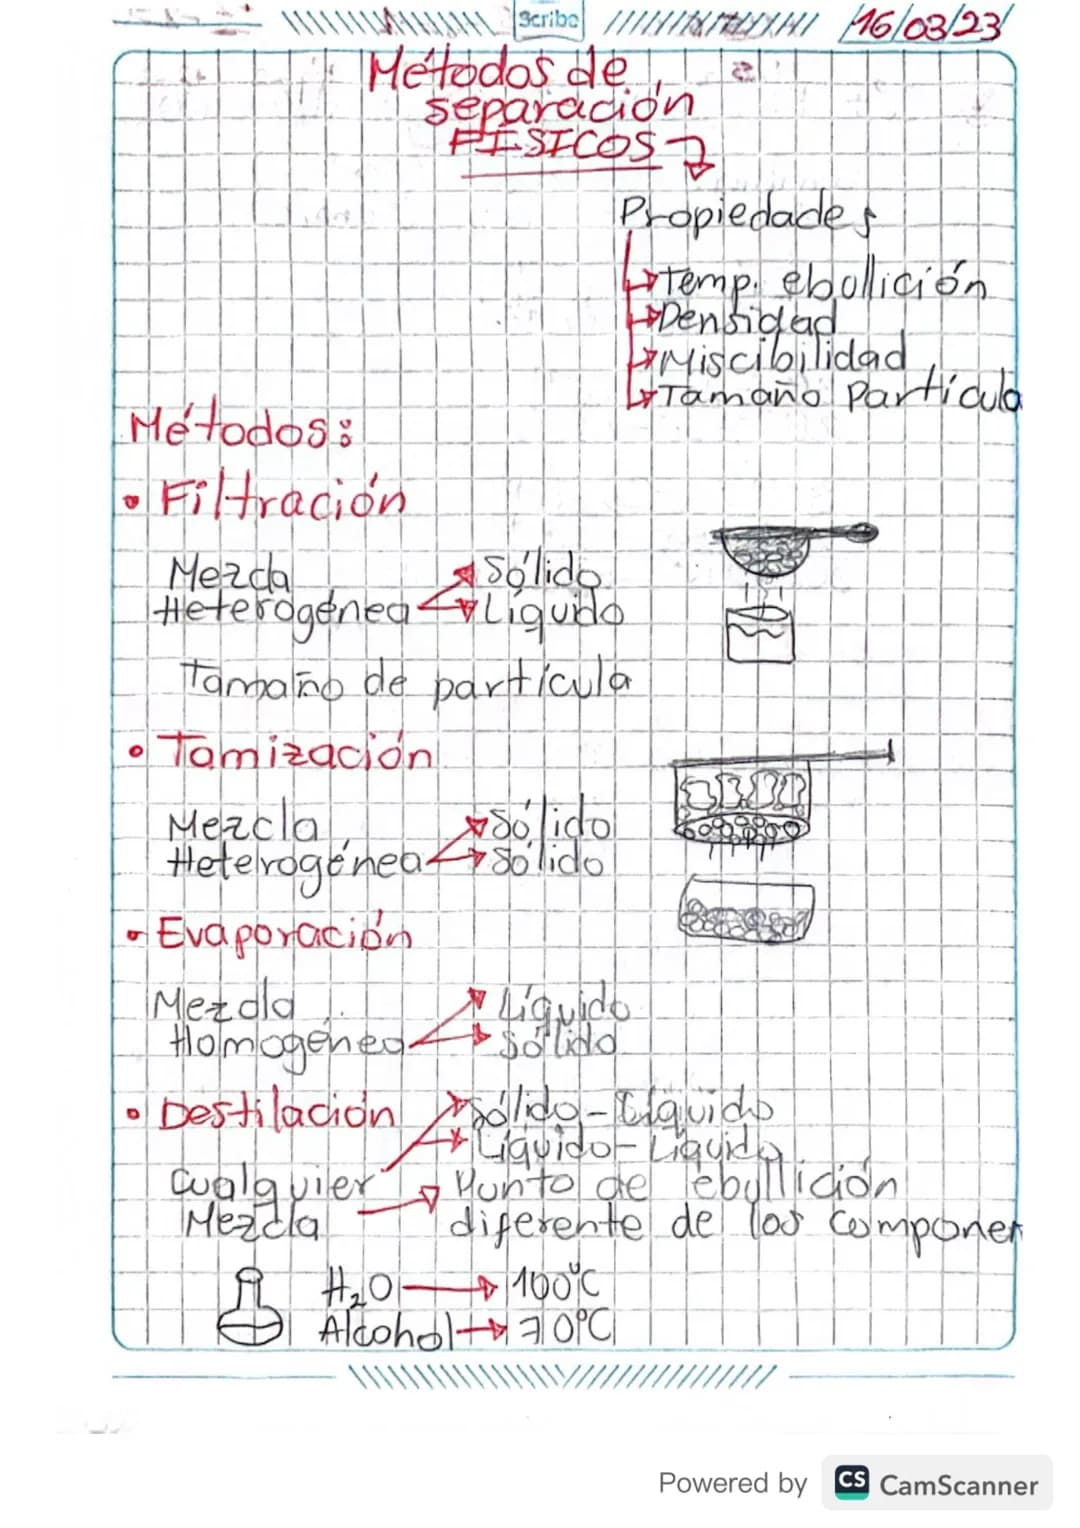 Scribe
16/03/23
Métodos de
separación
FISICOS
Propiedades
Temp. ebollición
Densidad
Miscibilidad
Tamaño Partícula
Métodos:
• Filtración
Mezcla
Heterogénea
Sólido
Líquido
Tamaño de partícula
• Tamización
Mezcla
Heterogénea
Sólido
Sólido
• Evaporación
Mezcla
Homogénea
Líquido
Sólido
• Destilación
Sólido-Líquido
Líquido-Líquido
Cualquier
Mezcla
Punto de ebullición
diferente de los componen
H₂O → 100°C
Alcohol → 70°C
Powered by CS CamScanner